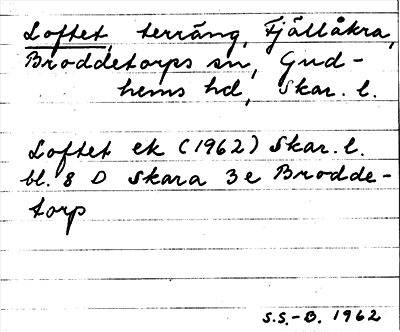 Loftet, terräng, Fjällåkra,
Broddetorps sn, Gud-
hems hd, Skar. l.
Loftet ek (1962) Skar. l.
bl. 8 D Skara 3e Brodde-
torp
S.S.-B. 1962